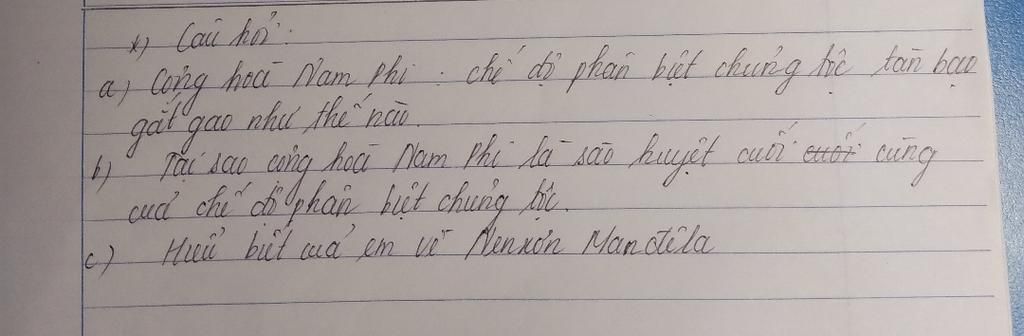 *) Câu hỏi:
a) Cộng hoà Nam Phi : chế độ phân biệt chủng tộc tàn bạo
gắt gao như thế nào.
b) Tại sao cộng hoà Nam Phi là sào huyệt cuối cuối cùng
của chế độ phân biệt chủng tộc.
c) Hiểu biết của em về Nenxơn Manđêla